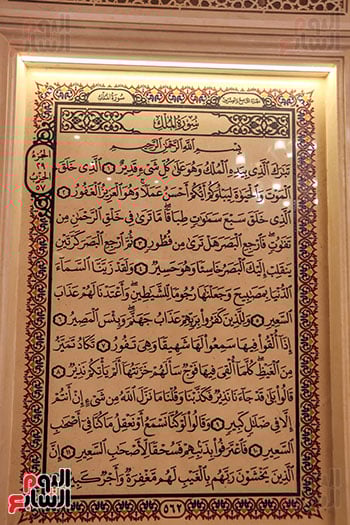 سورة الملك
الجزء التاسع والعشرون
الجزء
٢٩
الحزب
٥٧
سورة الملك
بسم الله الرحمن الرحيم
تَبَٰرَكَ ٱلَّذِي بِيَدِهِ ٱلْمُلْكُ وَهُوَ عَلَىٰ كُلِّ شَيْءٍ قَدِيرٌ ١ ٱلَّذِي خَلَقَ
ٱلْمَوْتَ وَٱلْحَيَوٰةَ لِيَبْلُوَكُمْ أَيُّكُمْ أَحْسَنُ عَمَلًا وَهُوَ ٱلْعَزِيزُ ٱلْغَفُورُ ٢
ٱلَّذِي خَلَقَ سَبْعَ سَمَٰوَٰتٍ طِبَاقًا مَّا تَرَىٰ فِي خَلْقِ ٱلرَّحْمَٰنِ مِن
تَفَٰوُتٍ فَٱرْجِعِ ٱلْبَصَرَ هَلْ تَرَىٰ مِن فُطُورٍ ٣ ثُمَّ ٱرْجِعِ ٱلْبَصَرَ كَرَّتَيْنِ
يَنقَلِبْ إِلَيْكَ ٱلْبَصَرُ خَاسِئًا وَهُوَ حَسِيرٌ ٤ وَلَقَدْ زَيَّنَّا ٱلسَّمَآءَ
ٱلدُّنْيَا بِمَصَٰبِيحَ وَجَعَلْنَٰهَا رُجُومًا لِّلشَّيَٰطِينِ وَأَعْتَدْنَا لَهُمْ عَذَابَ
ٱلسَّعِيرِ ٥ وَلِلَّذِينَ كَفَرُوا۟ بِرَبِّهِمْ عَذَابُ جَهَنَّمَ وَبِئْسَ ٱلْمَصِيرُ ٦
إِذَآ أُلْقُوا۟ فِيهَا سَمِعُوا۟ لَهَا شَهِيقًا وَهِيَ تَفُورُ ٧ تَكَادُ تَمَيَّزُ
مِنَ ٱلْغَيْظِ كُلَّمَآ أُلْقِيَ فِيهَا فَوْجٌ سَأَلَهُمْ خَزَنَتُهَآ أَلَمْ يَأْتِكُمْ نَذِيرٌ ٨
قَالُوا۟ بَلَىٰ قَدْ جَآءَنَا نَذِيرٌ فَكَذَّبْنَا وَقُلْنَا مَا نَزَّلَ ٱللَّهُ مِن شَيْءٍ إِنْ أَنتُمْ
إِلَّا فِي ضَلَٰلٍ كَبِيرٍ ٩ وَقَالُوا۟ لَوْ كُنَّا نَسْمَعُ أَوْ نَعْقِلُ مَا كُنَّا فِيٓ أَصْحَٰبِ
ٱلسَّعِيرِ ١٠ فَٱعْتَرَفُوا۟ بِذَنۢبِهِمْ فَسُحْقًا لِّأَصْحَٰبِ ٱلسَّعِيرِ ١١ إِنَّ
ٱلَّذِينَ يَخْشَوْنَ رَبَّهُم بِٱلْغَيْبِ لَهُم مَّغْفِرَةٌ وَأَجْرٌ كَبِيرٌ
٥٦٢
اليوم السابع